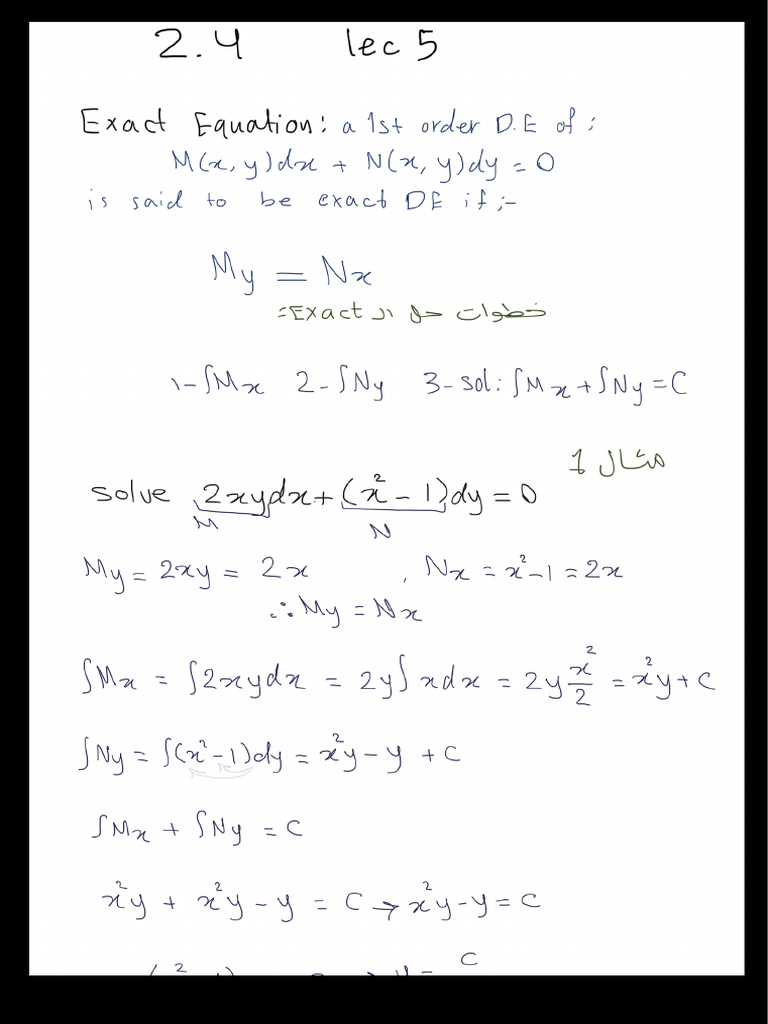 2.4 lec 5
Exact Equation: a 1st order D.E of:
M(x, y)dx + N(x, y)dy = 0
is said to be exact DE if :-
My = Nx
خطوات حل ال Exact:
1- ∫Mx 2- ∫Ny 3- sol: ∫Mx + ∫Ny = C
مثال 1
solve 2xydx + (x² - 1)dy = 0
M N
My = 2xy = 2x , Nx = x² - 1 = 2x
∴ My = Nx
∫Mx = ∫2xydx = 2y∫xdx = 2y x²/2 = x²y + C
∫Ny = ∫(x² - 1)dy = x²y - y + C
∫Mx + ∫Ny = C
x²y + x²y - y = C → x²y - y = C